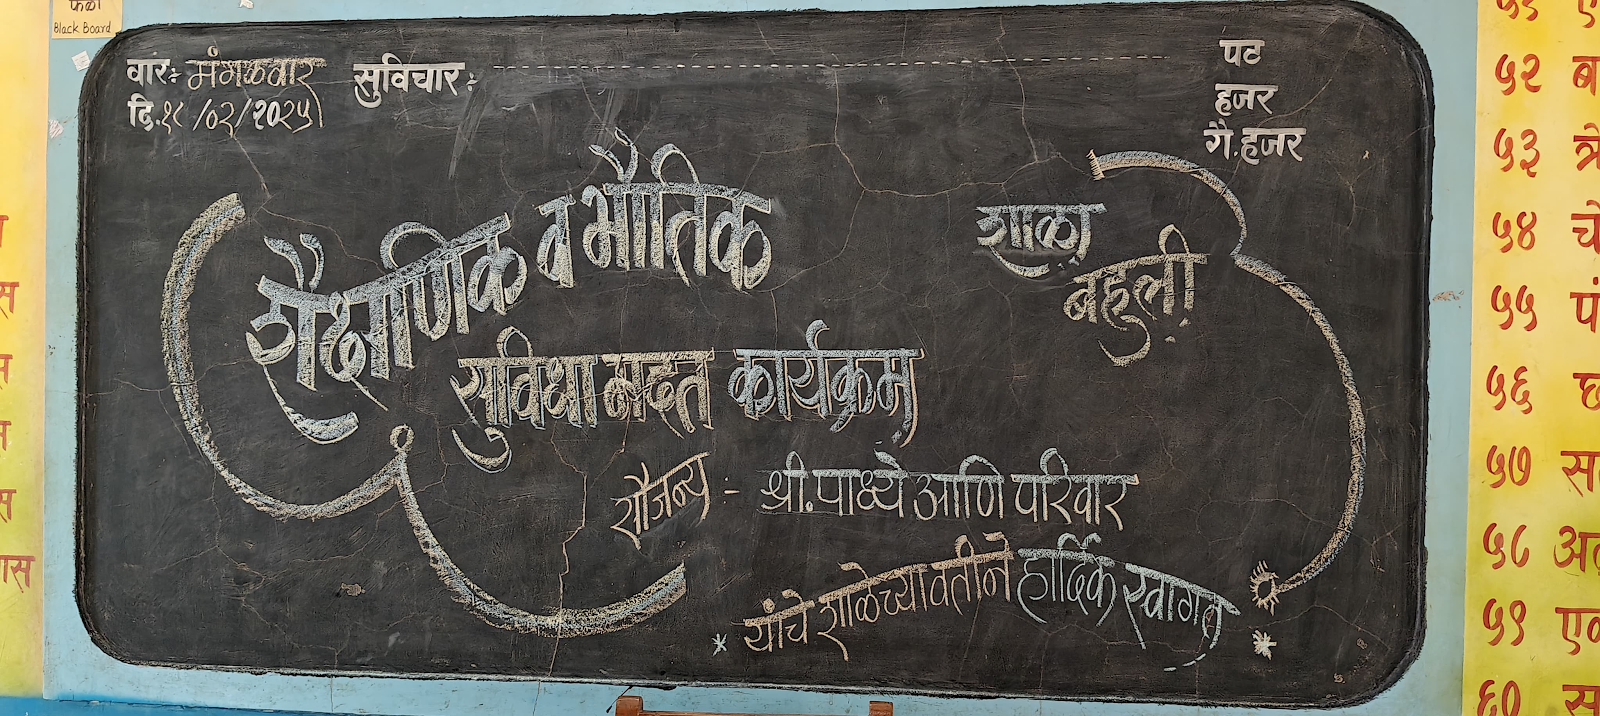 फळा
Black Board
वार:- मंगळवार
सुविचार:-
दि.१८/०२/२०२५
पट
हजर
गै.हजर
शैक्षणिक व भौतिक
सुविधा मदत कार्यक्रम
शाळा
बहुली
सौजन्य :- श्री.पाध्ये आणि परिवार
यांचे शाळेच्यावतीने हार्दिक स्वागत
५२
५३
५४
५५
५६
५७
५८
५९
६०